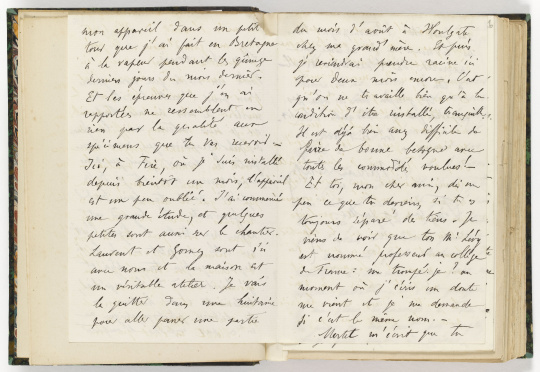 mon appareil dans un petit
tour que j'ai fait en Bretagne
à la vapeur pendant les quinze
derniers jours du mois dernier.
Et les épreuves que j'en ai
rapportées ne ressemblent en
rien par la qualité aux
spécimens que tu vas recevoir —
Ici, à où je suis installé
depuis bientôt un mois, l'appareil
est un peu oublié. J'ai commencé
une grande étude, et quelques
petites sont aussi sur le chantier.
Laurent et Gomez sont ici
avec nous et la maison est
un véritable atelier. Je vais
la quitter dans une huitaine
pour aller passer une partie
du mois d'août à Houlgate
chez ma grand'mère. Et puis
je reviendrai prendre racine ici
pour deux mois encore. C'est
qu'on ne travaille bien qu'à la
condition d'être installé, tranquille,
Il est déjà bien assez difficile de
faire de bonne besogne avec
toutes les commodités voulues! —
Et toi, mon cher ami, dis un
peu ce que tu deviens, si tu es
toujours séparé des tiens. Je
viens de voir que ton Mr Lévy
est nommé professeur au collège
de France: me trompé-je? au
moment où j'écris un doute
me vient et je me demande
si c'est le même nom. —
m'écrit que tu